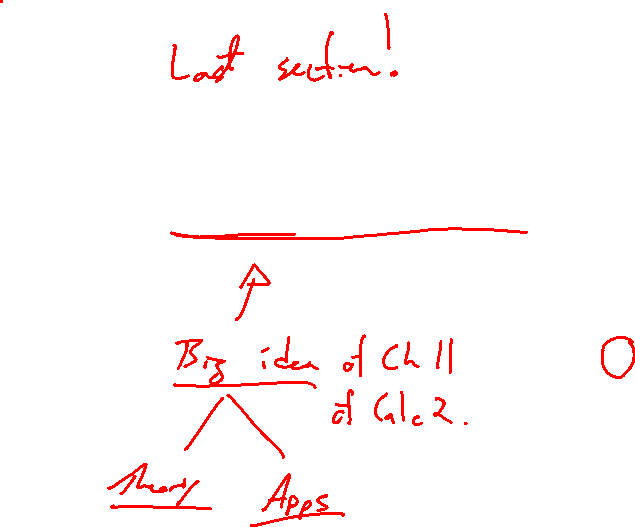 Last section!
Big idea of Ch 11
of Calc 2.
Theory Apps